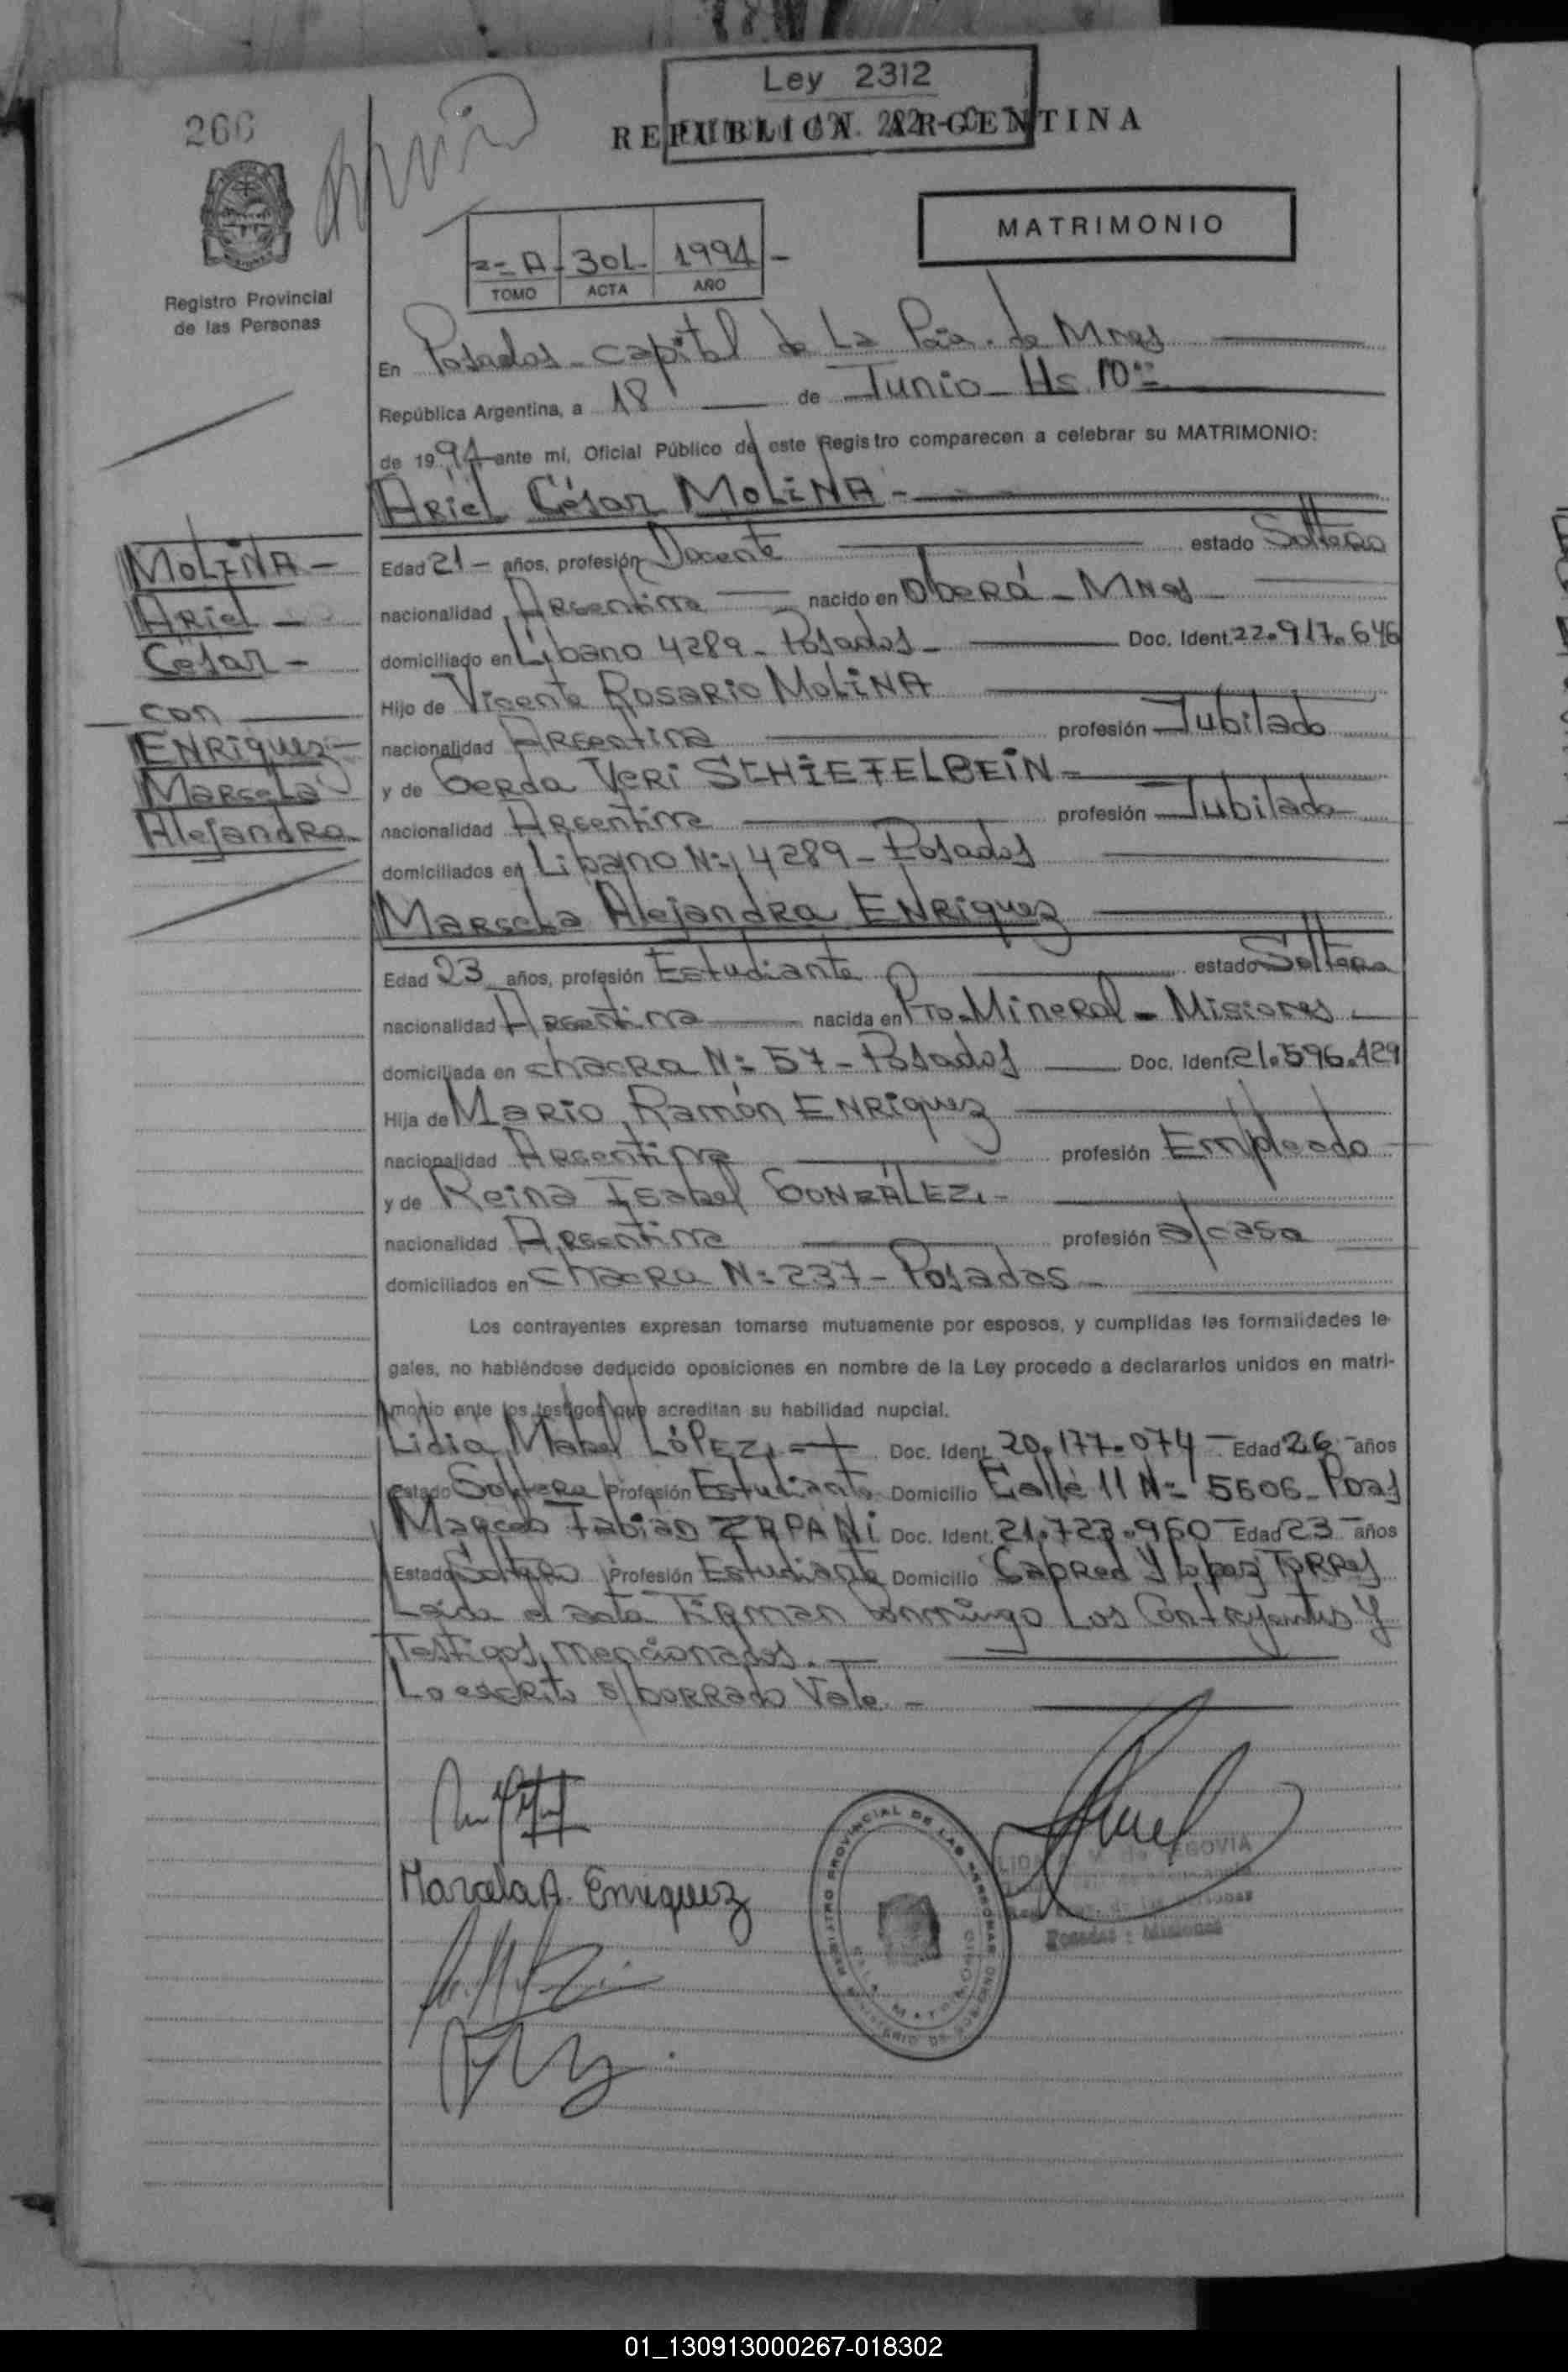 Ley 2312
REPUBLICA ARGENTINA
266
MATRIMONIO
2= A - 301 - 1994 -
TOMO ACTA AÑO
Registro Provincial
de las Personas
En Posadas - capital de La Pcia. de Mnes
República Argentina, a 18 de Junio - Hs. 10
de 1994 ante mí, Oficial Público de este Registro comparecen a celebrar su MATRIMONIO:
Ariel César MOLINA -
MOLINA -
Ariel -
César -
con
ENRiquez -
Marcela
Alejandra
Edad 21 - años, profesión Docente estado Soltero
nacionalidad Argentina nacido en Oberá - Mnes -
domiciliado en Líbano 4289 - Posadas - Doc. Ident. 22.917.646
Hijo de Vicente Rosario MOLINA
nacionalidad Argentina profesión Jubilado
y de Gerda Veri SCHIEFELBEIN -
nacionalidad Argentina profesión Jubilada
domiciliados en Libano N= 4289 - Posadas
Marcela Alejandra ENRiquez
Edad 23 años, profesión Estudiante estado Soltera
nacionalidad Argentina nacida en Pto. Mineral - Misiones -
domiciliada en chacra N= 57 - Posadas Doc. Ident. 21.596.129
Hija de Mario Ramón ENRiquez
nacionalidad Argentina profesión Empleado
y de Reina Isabel GONZÁLEZ. -
nacionalidad Argentina profesión a/casa
domiciliados en chacra N= 237 - Posadas -
Los contrayentes expresan tomarse mutuamente por esposos, y cumplidas las formalidades le-
gales, no habiéndose deducido oposiciones en nombre de la Ley procedo a declararlos unidos en matri-
monio ante los testigos que acreditan su habilidad nupcial.
Lidia Mabel LÓPEZ. - Doc. Ident. 20.177.074 - Edad 26 - años
estado Soltera Profesión Estudiante Domicilio Calle 11 N= 5606 - Pdas
Marcelo Fabián ZRPANi Doc. Ident. 21.723.960 - Edad 23 - años
Estado Soltero Profesión Estudiante Domicilio Cabred y Lopez Torres
Leída el acta Firman conmigo Los Contrayentes y
Testigos mencionados. -
Lo escrito s/borrado Vale -
Marcela A. Enriquez
REGISTRO PROVINCIAL DE LAS PERSONAS
SALA MATRIMONIO
MINISTERIO DE GOBIERNO
M. de SEGOVIA
Posadas : Misiones
01_130913000267-018302